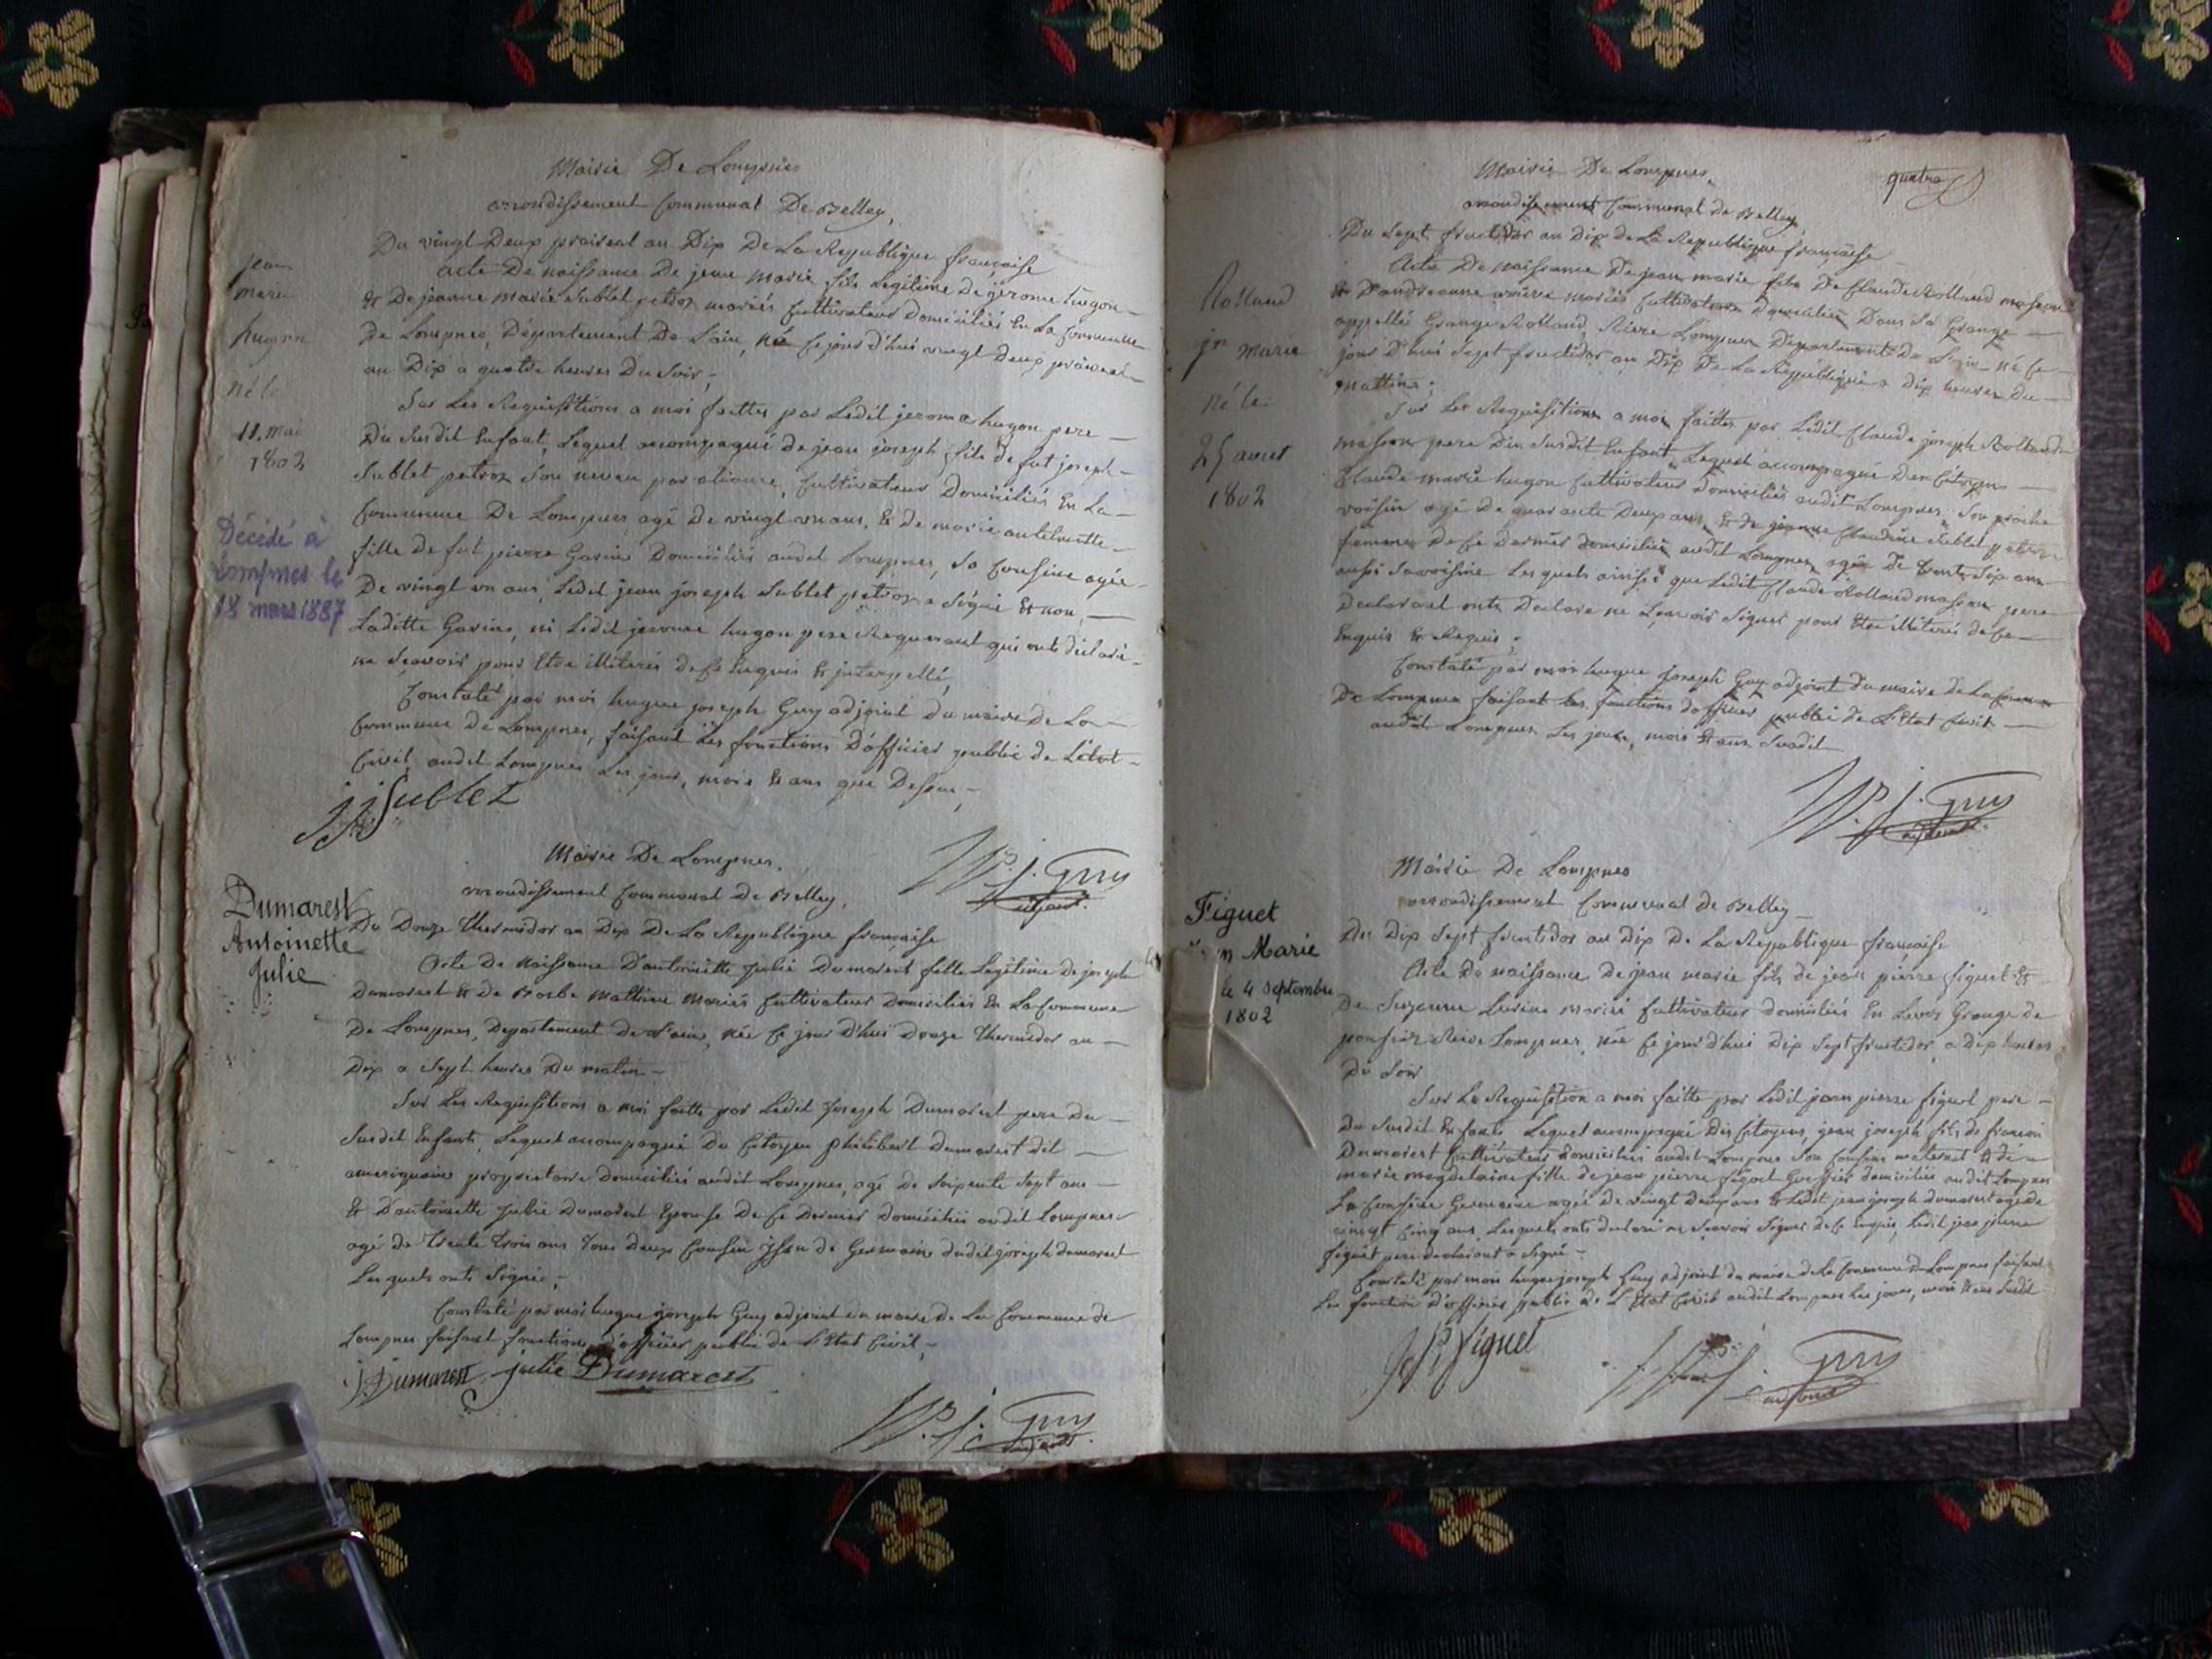 Mairie De Lompnes
arrondissement Communal De Belley,
Du vingt Deux prairéal an Dix De La Republique francaise
acte De naissance De jean Marie fils Legitime De jerome hugon
& De jeanne Marie Sublet petroz mariés Cultivateur Domiciliés En La Commune
De Lompnes, Département De L'ain, né Ce jour d'hui vingt Deux prairéal
an Dix a quatre heures Du Soir,
Sur Les Requisitions a moi faittes par Ledit jerome hugon pere
Du Susdit Enfant, Lequel accompagné de jean joseph fils de fut joseph
Sublet petroz Son neveu par aliance, Cultivateur Domiciliés En La
Commune De Lompnes agé De vingt un ans, & de marie antoinette
fille de fut pierre Gavins Domiciliés audit Lompnes, Sa Cousine agée
De vingt un ans, Ledit jean joseph Sublet petroz a Signé & non
Laditte Gavins, ni Ledit jerome hugon pere Requerant qui ont déclaré
ne Scavoir pour Etre illiterés de Ce Enquis & interpellé,
Constaté par moi hugue joseph Guy adjoint du maire De La
Commune de Lompnes, faisant Les fonctions D'officier public de L'état
Civil, audit Lompnes Les jour, mois & ans que Dessus,
jjSublet
h. j. Guy
adjoint.
jean
marie
hugon
né le
11. mai
1802
Décédé à
Lompnes le
18 mars 1887
Mairie De Lompnes,
arrondissement Communal De Belley,
Dumarest
Antoinette
Julie
Du Douze thermidor an Dix De La Republique francaise
Acte De Naissance D'antoinette Julie Dumarest fille Legitime de joseph
Dumarest & de Barbe Mathieu Mariés Cultivateur Domiciliés En La Commune
De Lompnes, Departement de L'ain, née Ce jour d'hui Douze thermidor an
Dix a Sept heures Du matin
Sur Les Requisitions a moi faitte par Ledit Joseph Dumarest pere Du
Susdit Enfant, Lequel accompagné Du Citoyen philibert Dumarest dit
ameriquain proprietaire Domiciliés audit Lompnes, agé De Soixante Sept ans
& D'antoinette Julie Dumarest Epouse De Ce Dernier Domiciliés audit Lompnes
agé de Trente trois ans Tous Deux Cousin issu de Germains dudit joseph Dumarest
Lesquels ont Signés,
Constaté par moi hugue joseph Guy adjoint du maire de La Commune de
Lompnes faisant fonctions d'officier public de L'Etat Civil,
j Dumarest julie Dumarest
h. j. Guy
adjoint.
quatre
Mairie De Lompnes,
arrondissement Communal de Belley
Du Sept fructidor an Dix de La Republique francaise
Acte De naissance De jean marie fils De Claude Rolland masson
& D'andreanne mariés Cultivateur domiciliés Dans Sa Grange
appellé Grange Rolland, Riere Lompnes Departement De L'ain né Ce
jour d'hui Sept fructidor an Dix De La Republique a Dix heures Du
mattins;
Sur Les Requisitions a moi faittes par Ledit Claude joseph Rolland
masson pere Du Susdit Enfant, Lequel accompagné Des Citoyens
Claude marie hugon Cultivateur domiciliés audit Lompnes, Son proche
voisin agé de quarante Deux ans & de jeanne Claudine Sublet petroz
femme De Ce Dernier domiciliés audit Lompnes, agée De trente Six ans
aussi Sa voisine Lesquels ainsi que Ledit Claude Rolland masson pere
Declarant ont Declare ne Scavoir Signer pour Etre illiterés de Ce
Enquis & Requis;
Constaté par moi hugue joseph Guy adjoint du maire de La Commune
De Lompnes faisant les fonctions d'officier public de L'Etat Civil
audit Lompnes Les jour, mois & ans Susdit
h. j. Guy
adjoint.
Rolland
jn marie
né le
25 aout
1802
Mairie De Lompnes
arrondissement Communal de Belley
Figuet
Marie
le 4 septembre
1802
Du Dix Sept fructidor an Dix De La Republique francaise
Acte De naissance de jean marie fils de jean pierre figuet &
De Suzanne mariés Cultivateur domiciliés En Leurs Grange de
Riere Lompnes, née Ce jour d'hui Dix Sept fructidor, a Dix heures
Du Soir
Sur La Requisition a moi faitte par Ledit jean pierre figuet pere
Du Susdit Enfant Lequel accompagné Des Citoyens jean joseph fils de francois
Dumarest Cultivateur domiciliés audit Lompnes Son Cousin maternel & de
marie magdelaine fille de jean pierre domiciliés audit Lompnes
Sa Cousine Germaine agée de vingt Deux ans & Ledit jean joseph dumarest agé de
vingt Cinq ans, Lesquels ont declaré ne Scavoir Signer de Ce Enquis, Ledit jean pierre
figuet pere declarant a Signé
Constaté par moi hugue joseph Guy adjoint du maire de La Commune de Lompnes faisant
Les fonction d'officier public de L'Etat Civil audit Lompnes Les jour, mois & ans Susdit
J P figuet
h. j. Guy
adjoint